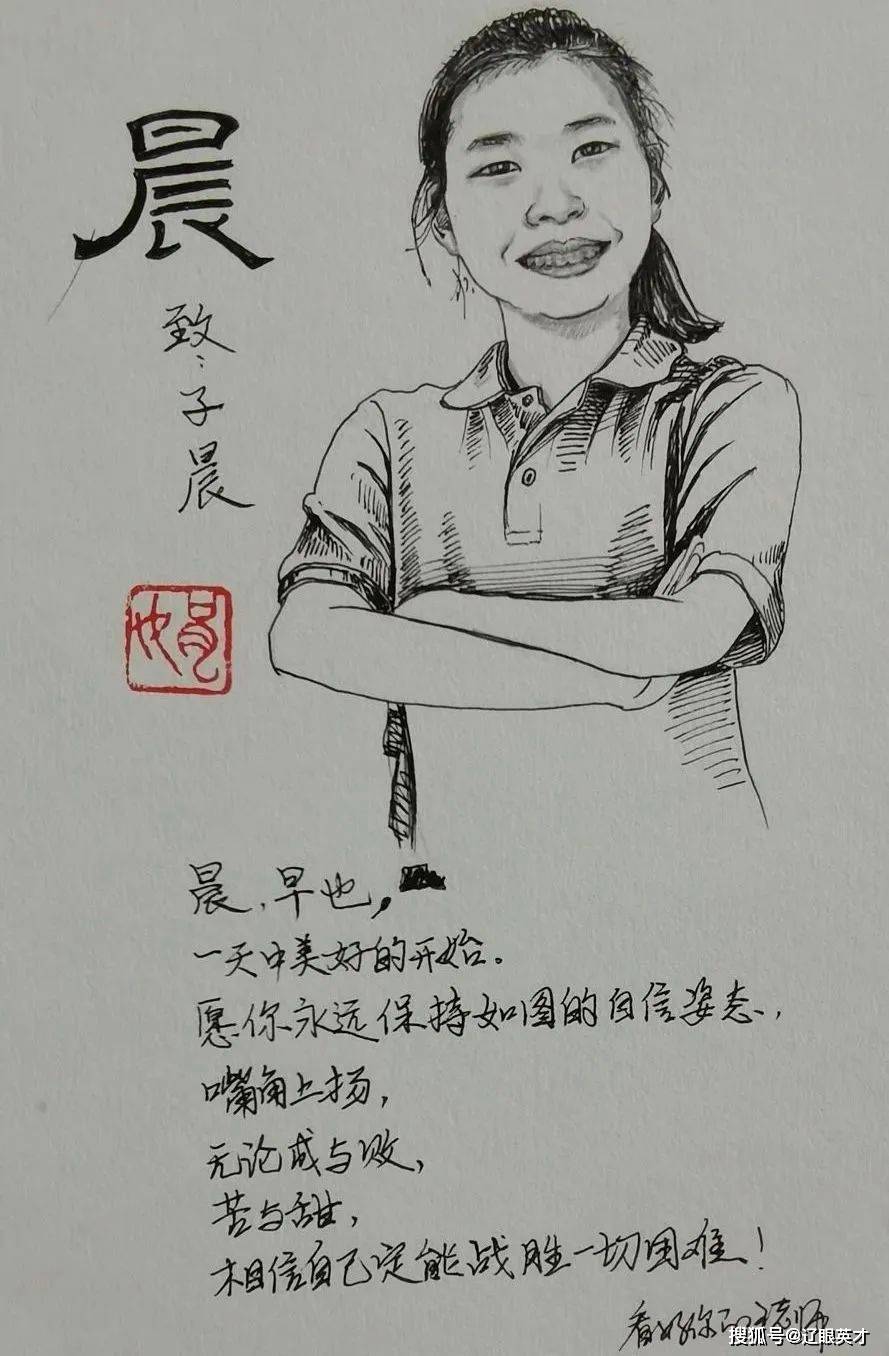 晨
致：子晨
晨，早也，
一天中美好的开始。
愿你永远保持如图的自信姿态，
嘴角上扬，
无论成与败，
苦与甜，
相信自己定能战胜一切困难！
看好你的王老师
搜狐号@辽眼英才